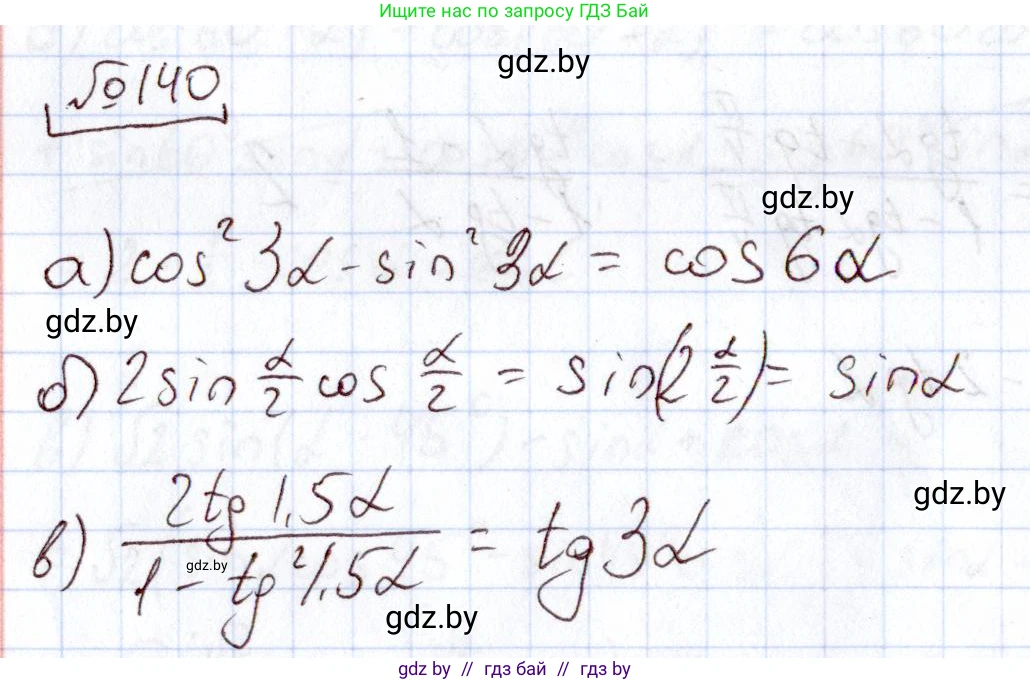 Ищите нас по запросу ГДЗ Бай
№140
gdz.by
gdz.by
а) cos² 3α - sin² 3α = cos 6α
gdz.by
б) 2 sin α/2 cos α/2 = sin(2 α/2) = sin α
gdz.by
в) 2 tg 1,5 α / 1 - tg² 1,5 α = tg 3α
gdz.by
gdz.by
gdz by // гдз бай // gdz by